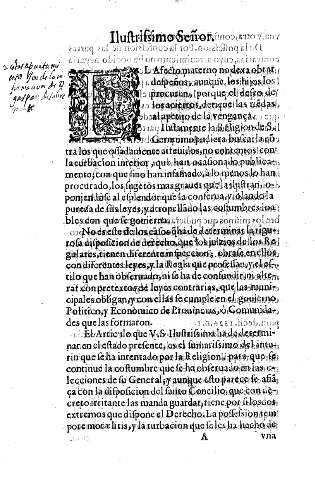 Ilustrissimo Señor.
EL Afecto materno no dexa obrar
despeños, aunque los hijos los
procuran, porque el deseo de
los aciertos, denque las riendas
al apetito de la vengança.
Iustamente la Religion de S.
Geronimo pudiera buscar
tra los que osadamente atreuidos, no contentos con
la turbacion interior, que han ocasionado publica-
mente; con que sino han infamado, à lo menos lo han
procurado, los sugetos mas graues que la ilustran, o-
poniendose al esplendor que la conserua, violando la
pureza de sus leyes, y atropellado las costumbres lau-
bles con que se gouierna.
No es este de los casos q̃ ha de determinar la rigu-
rosa disposicion de derecho, que los juizios de los Re-
gulares, tienen diferente inspeccion, obrase en ellos
con diferentes leyes, y la Regla que professan, y el es-
tilo que han obseruado, ni se ha de confundir, ni alte-
rar con pretextos de leyes contrarias, que las muni-
cipales obligan, y con ellas se cumple en el gouierno
Politico, y Economico de Prouincias, ò Comunida-
des que las formaron.
El Articulo que V.S. Ilustrissima ha de determi-
nar en el estado presente, es el sumarissimo del inte-
rin que se ha intentado por la Religion, para que se
continue la costumbre que se ha obseruado en las e-
lecciones de su General; y aunque esto parece se afiã-
ça con la disposicion del santo Concilio, que con de-
creto irritante las manda guardar, tiene por si los dos
extremos que dispone el Derecho. La possession tem-
pore motæ litis, y la turbacion que se les ha hecho de
A vna